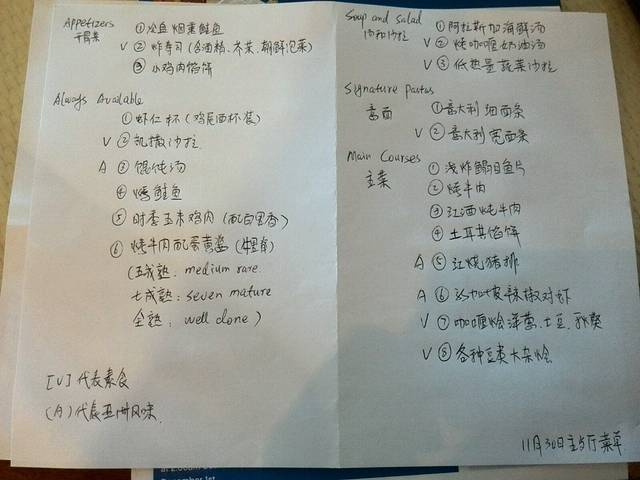 Appetizers
开胃菜
① 冷盘 烟熏鲑鱼
V ② 炸寿司（含酒精、芥菜、朝鲜泡菜）
③ 小鸡肉馅饼
Always Available
① 虾仁杯（鸡尾酒杯装）
V ② 凯撒沙拉
A ③ 馄饨汤
④ 烤鲑鱼
⑤ 时季玉米鸡肉（配百里香）
⑥ 烤牛肉配蛋黄酱
（五成熟： medium rare.
七成熟： seven mature
全熟： well done）
[V] 代表素食
(A) 代表亚洲风味.
Soup and Salad
汤和沙拉
① 阿拉斯加海鲜汤
V ② 烤咖喱奶油汤
V ③ 低热量蔬菜沙拉
Signature Pastas
意面
① 意大利细面条
V ② 意大利宽面条
Main Courses
主菜
① 浅炸鳎目鱼片
② 烤牛肉
③ 红酒炖牛肉
④ 土耳其馅饼
A ⑤ 红烧猪排
A ⑥ 沙加坡辣椒对虾
V ⑦ 咖喱烩洋葱、土豆、秋葵
V ⑧ 各种豆类大杂烩
11月30日主餐厅菜单